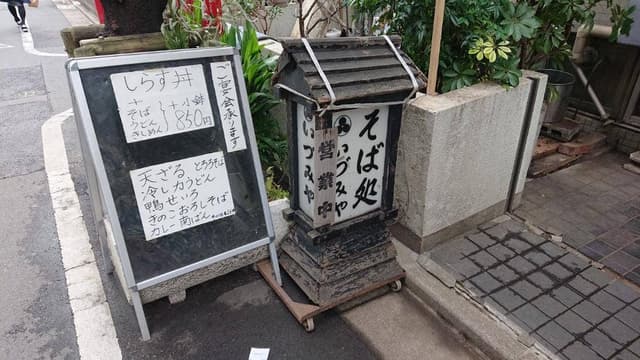 しらす丼
+
そば
うどん
きしめん
+小鉢
850円
ご宴会承ります
天ざる とろろそば
冷し力うどん
鴨せいろ
きのこおろしそば
カレー南ばん
営業中
いづみや
そば処
いづみや